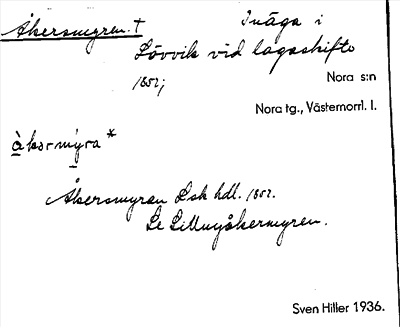 Åkersmyren.† Inäga i
Lövvik vid lagaskifte
1852;
Nora s:n
Nora tg., Västernorrl. l.
àkərmýra*
Åkersmyren Lsk hdl. 1852.
Se Lillmyåkermyren.
Sven Hitler 1936.